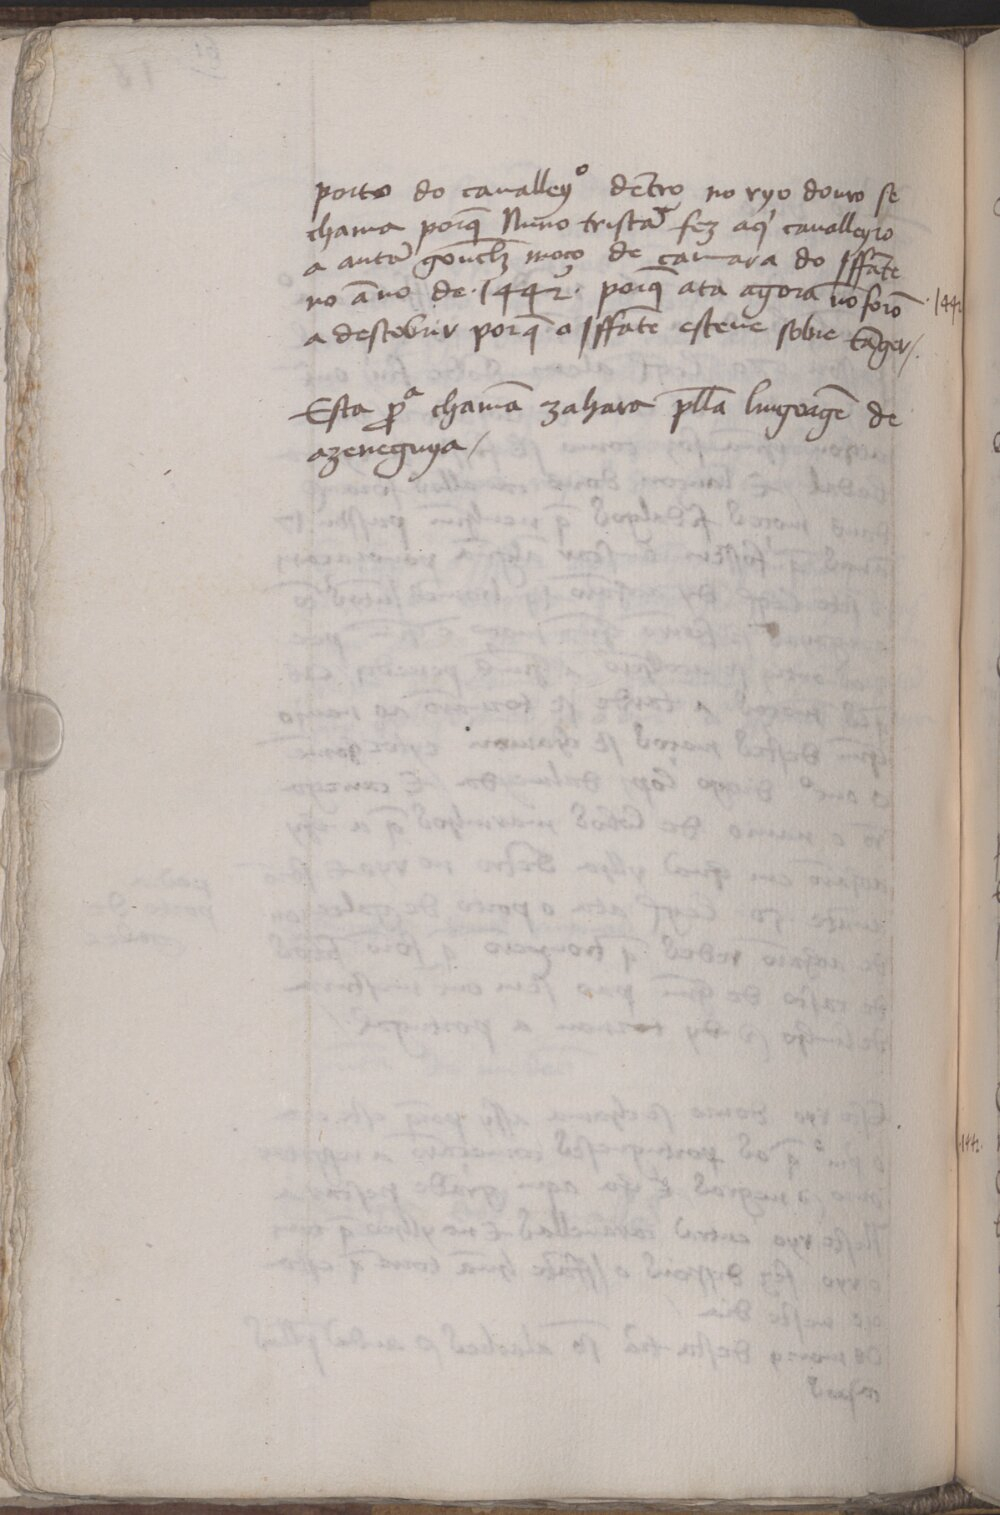 porto do caualleyo dẽtro no ryo douro se
chama porq̃ Nuno tristã fez aq̃ caualleyro
a antã gõnclz moço de camara do Iffãte
no ãno de · 1442 · porq̃ ata agora nõ forõ
· 1442
a descobrir porq̃ o Iffãte esteue sobre tãger /.
Esta pra chamã zahara plla lingoagẽ de
azeneguya /